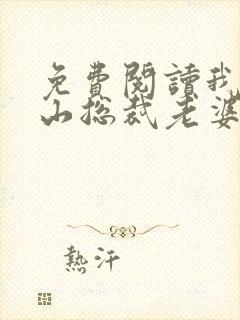 免費閱讀我
山總裁老婆
熱汗